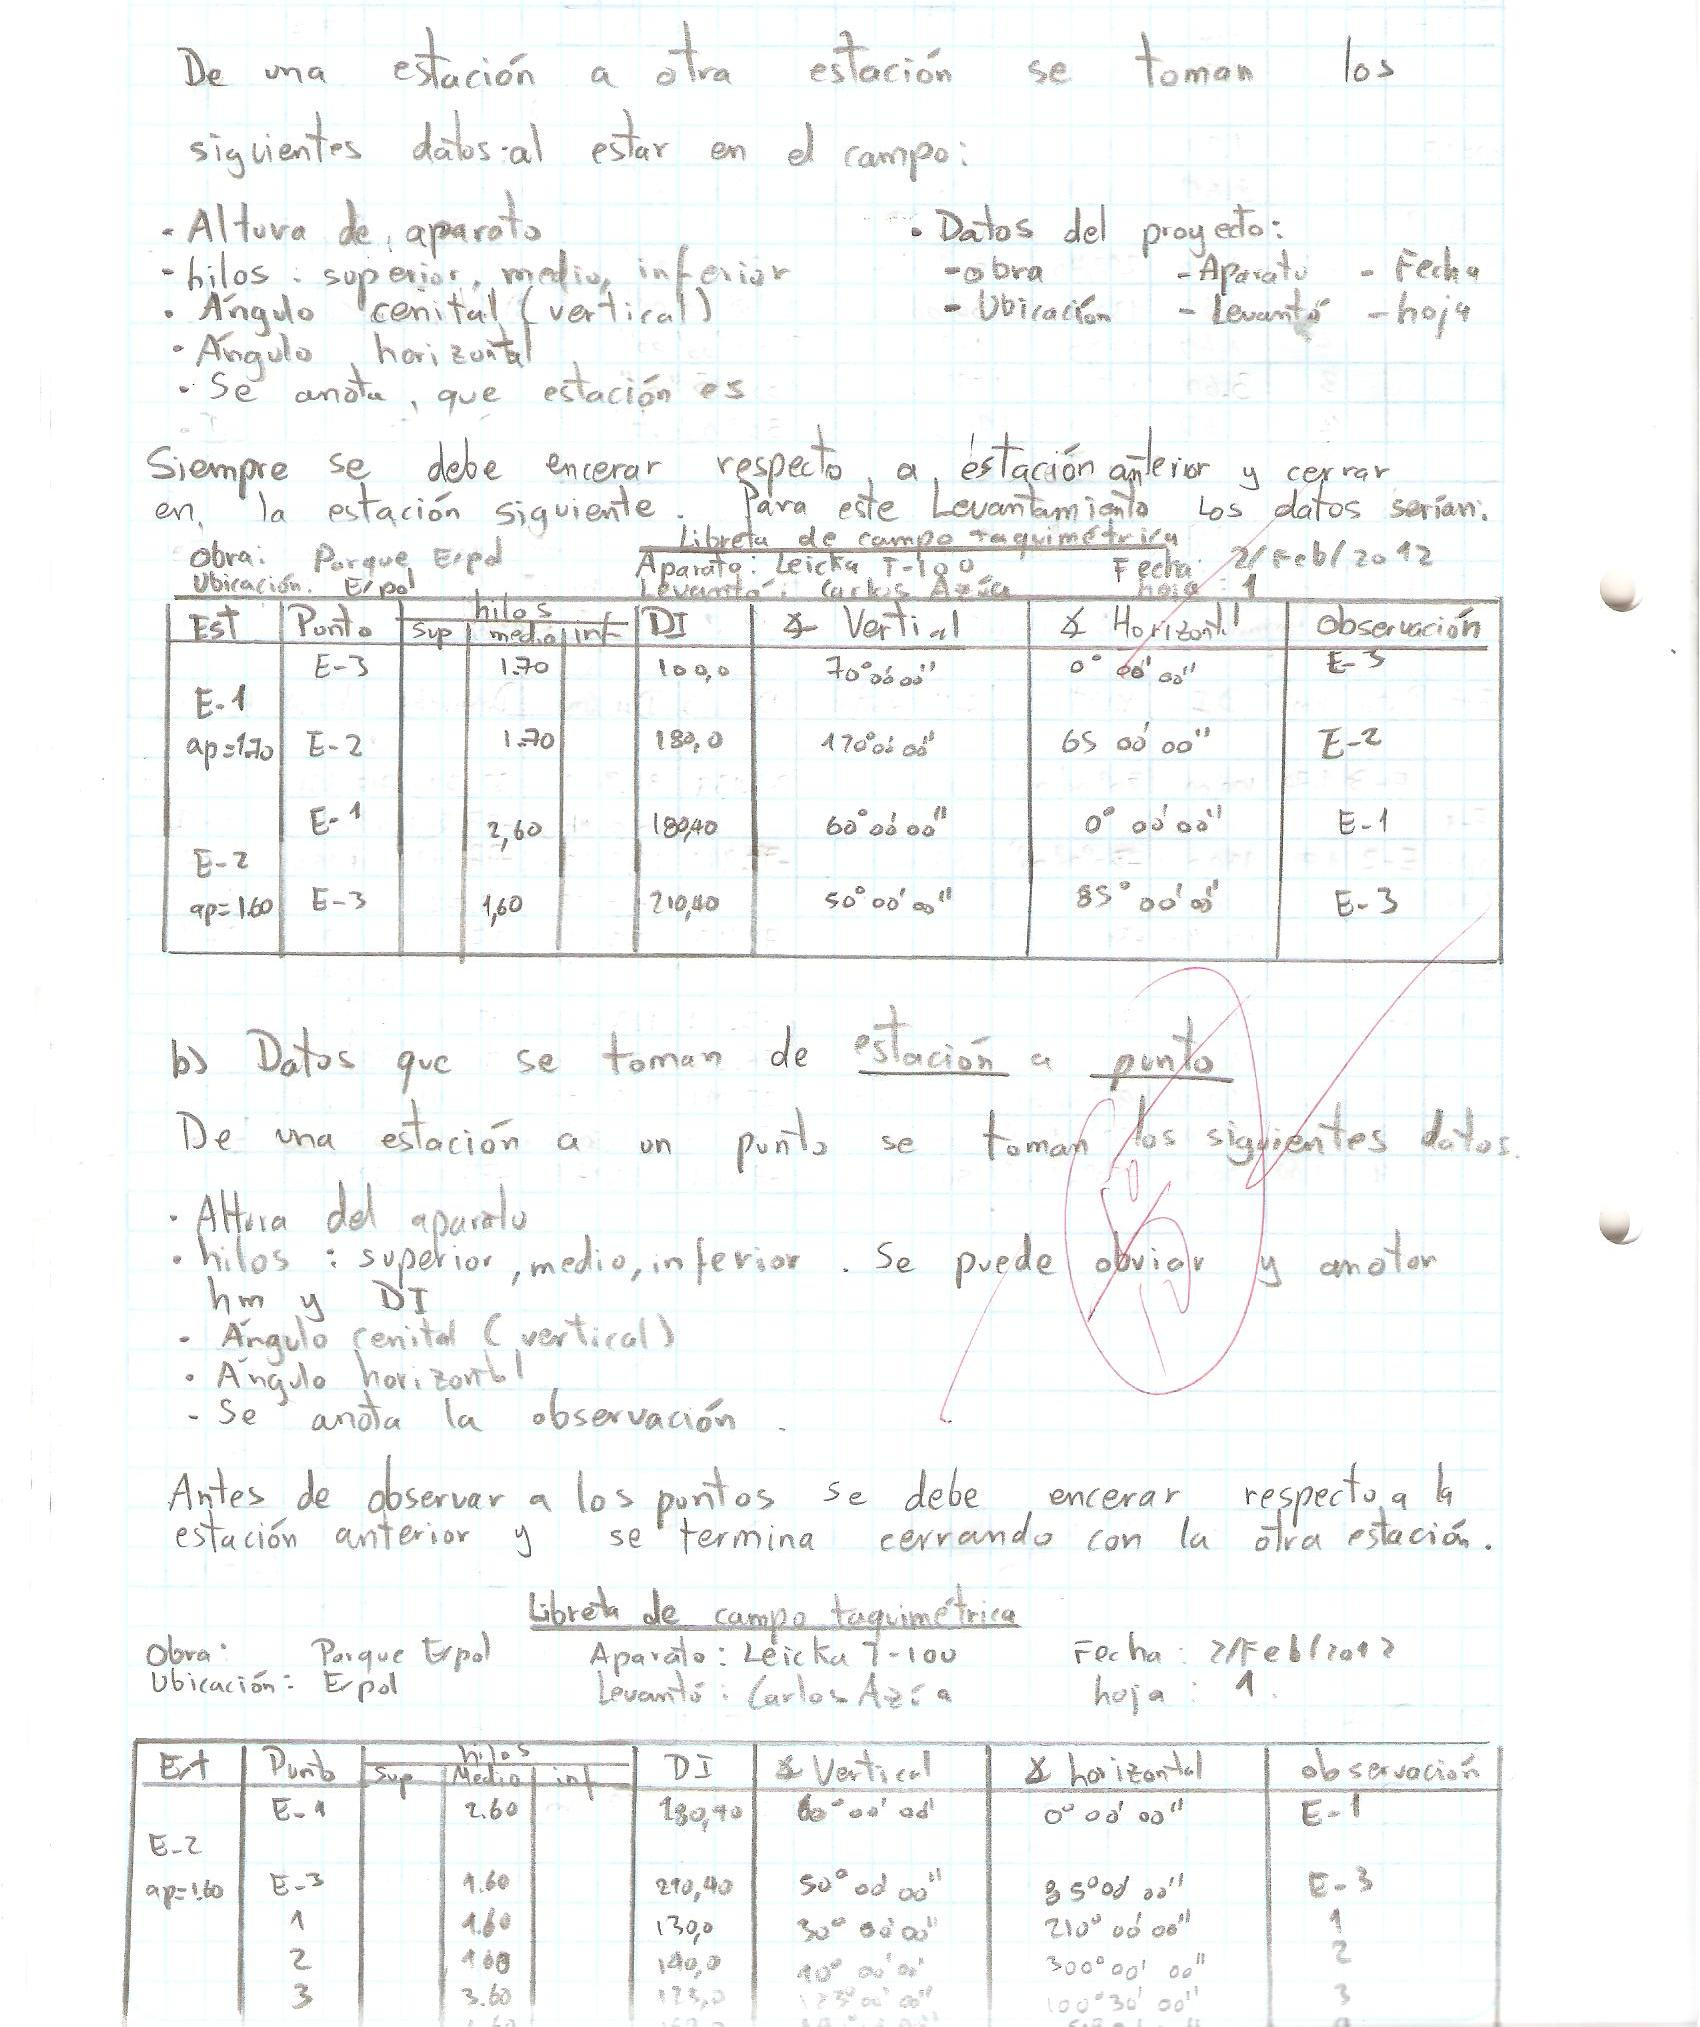 De una estación a otra estación se toman los
siguientes datos al estar en el campo:
· Altura de aparato
- hilos : superior, medio, inferior
· Ángulo cenital (vertical)
· Ángulo horizontal
· Se anota, que estación es
· Datos del proyecto:
- obra - Aparato - Fecha
- Ubicación - Levantó - hoja
Siempre se debe encerar respecto a estación anterior y cerrar
en la estación siguiente. Para este Levantamiento Los datos serían:
Libreta de campo taquimétrica
Obra: Parque Erpol Aparato: Leicka T-100 Fecha: 2/Feb/2012
Ubicación. Erpol Levantó: Carlos Azéa hoja: 1
Est Punto hilos DI ∡ Vertical ∡ Horizontal Observación
sup medio inf
E-3 1.70 100,0 70°00'00" 0° 00' 00" E-3
E-1
ap=1.70 E-2 1.70 180,0 170°00'00" 65 00' 00" E-2
E-1 2,60 180,40 60°00'00" 0° 00'00" E-1
E-2
ap=1.60 E-3 1,60 210,40 50°00'00" 85° 00'00" E-3
b) Datos que se toman de estación a punto
De una estación a un punto se toman los siguientes datos.
· Altura del aparato
· hilos : superior, medio, inferior . Se puede obviar y anotar
hm y DI
· Ángulo cenital (vertical)
· Ángulo horizontal
- Se anota la observación .
Antes de observar a los puntos se debe encerar respecto a la
estación anterior y se termina cerrando con la otra estación.
Libreta de campo taquimétrica
Obra: Parque Erpol Aparato: Leicka T-100 Fecha : 2/Feb/2012
Ubicación: Erpol Levantó: Carlos Azéa hoja : 1
Est Punto hilos DI ∡ Vertical ∡ horizontal observación
sup Medio inf
E-1 2.60 180,40 60°00'00" 0°00'00" E-1
E-2
ap=1.60 E-3 1.60 210,40 50°00'00" 85°00'00" E-3
1 1.60 130,0 30°00'00" 210°00'00" 1
2 1.60 140,0 10°00'00" 300°00'00" 2
3 3.60 123,0 123°00'00" 100°30'00" 3